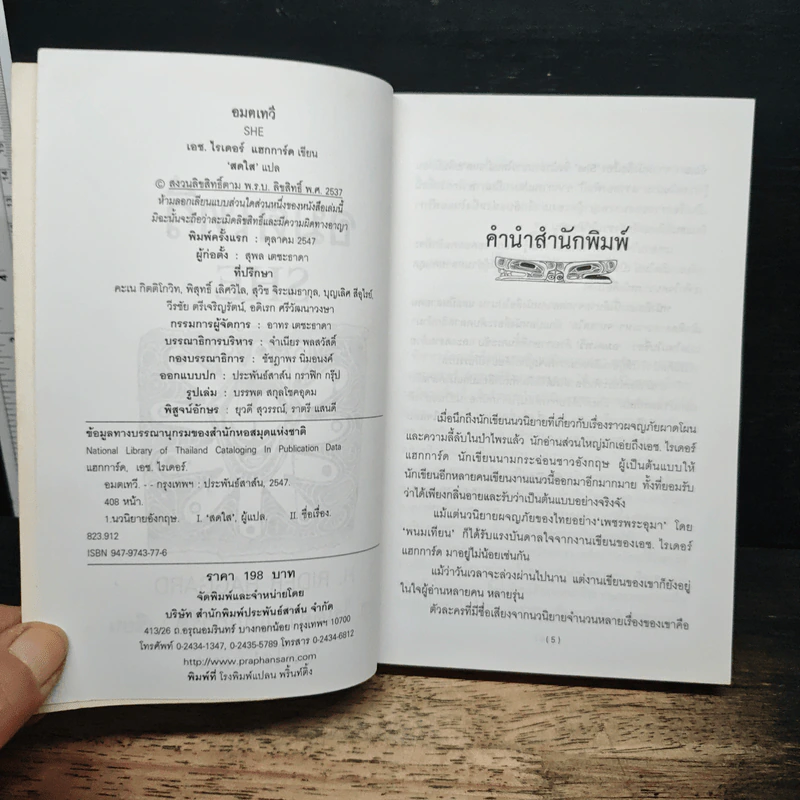 อมตเทวี
SHE
เอช. ไรเดอร์ แฮกการ์ด เขียน
'สดใส' แปล
© สงวนลิขสิทธิ์ตาม พ.ร.บ. ลิขสิทธิ์ พ.ศ. 2537
ห้ามลอกเลียนแบบส่วนใดส่วนหนึ่งของหนังสือเล่มนี้
มิฉะนั้นจะถือว่าละเมิดลิขสิทธิ์และมีความผิดทางอาญา
พิมพ์ครั้งแรก : ตุลาคม 2547
ผู้ก่อตั้ง : สุพล เตชะธาดา
ที่ปรึกษา
คะเน กิตติโกวิท, พิสุทธิ์ เลิศวิไล, สุวิช จิระเมธากุล, บุญเลิศ สีอุไรย์,
วีรชัย ตรีเจริญรัตน์, อดิเรก ศรีวัฒนาวงษา
กรรมการผู้จัดการ : อาทร เตชะธาดา
บรรณาธิการบริหาร : จำเนียร พลสวัสดิ์
กองบรรณาธิการ : ชัชฎาพร นิ่มอนงค์
ออกแบบปก : ประพันธ์สาส์น กราฟิก กรุ๊ป
รูปเล่ม : บรรพต สกุลโชคอุดม
พิสูจน์อักษร : ยุวดี สุวรรณ์, ราตรี แสนดี
ข้อมูลทางบรรณานุกรมของสำนักหอสมุดแห่งชาติ
National Library of Thailand Cataloging In Publication Data
แฮกการ์ด, เอช. ไรเดอร์.
อมตเทวี. -- กรุงเทพฯ : ประพันธ์สาส์น, 2547.
408 หน้า.
1.นวนิยายอังกฤษ. I. 'สดใส', ผู้แปล. II. ชื่อเรื่อง.
823.912
ISBN 947-9743-77-6
ราคา 198 บาท
จัดพิมพ์และจำหน่ายโดย
บริษัท สำนักพิมพ์ประพันธ์สาส์น จำกัด
413/26 ถ.อรุณอมรินทร์ บางกอกน้อย กรุงเทพฯ 10700
โทรศัพท์ 0-2434-1347, 0-2435-5789 โทรสาร 0-2434-6812
http://www.praphansarn.com
พิมพ์ที่ โรงพิมพ์แปลน พริ้นท์ติ้ง
คำนำสำนักพิมพ์
เมื่อนึกถึงนักเขียนนวนิยายที่เกี่ยวกับเรื่องราวผจญภัยผาดโผน
และความลี้ลับในป่าไพรแล้ว นักอ่านส่วนใหญ่มักเอ่ยถึงเอช. ไรเดอร์
แฮกการ์ด นักเขียนนามกระฉ่อนชาวอังกฤษ ผู้เป็นต้นแบบให้
นักเขียนอีกหลายคนเขียนงานแนวนี้ออกมาอีกมากมาย ทั้งที่ยอมรับ
ว่าได้เพียงกลิ่นอายและรับว่าเป็นต้นแบบอย่างจริงจัง
แม้แต่นวนิยายผจญภัยของไทยอย่าง"เพชรพระอุมา" โดย
"พนมเทียน" ก็ได้รับแรงบันดาลใจจากงานเขียนของเอช. ไรเดอร์
แฮกการ์ด มาอยู่ไม่น้อยเช่นกัน
แม้ว่าวันเวลาจะล่วงผ่านไปนาน แต่งานเขียนของเขาก็ยังอยู่
ในใจผู้อ่านหลายคน หลายรุ่น
ตัวละครที่มีชื่อเสียงจากนวนิยายจำนวนหลายเรื่องของเขาคือ
(5)